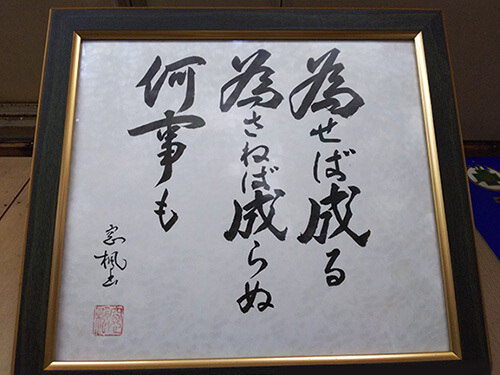 為せば成る
為さねば成らぬ
何事も